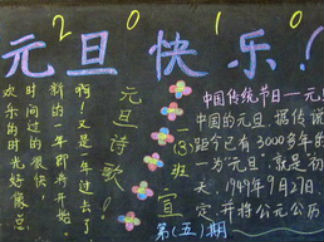 2010
元旦快乐!
元旦诗歌!
啊!又是一年过去了
新的一年即将开始。
时间过的很快,
欢乐的时光好像总
一(3)班宣
第(五)期
中国传统节日—元旦
中国的元旦,据传说
距今已有3000多年的
一为“元旦”,就是初
天,1949年9月27日,
定,并将公元公历